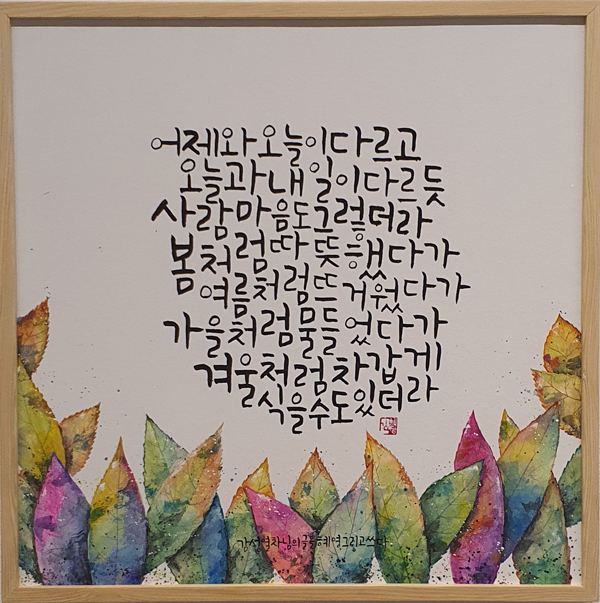 어제와 오늘이 다르고
오늘과 내일이 다르듯
사람 마음도 그럴더라
봄처럼 따뜻했다가
여름처럼 뜨거웠다가
가을처럼 물들었다가
겨울처럼 차갑게
식을 수도 있더라